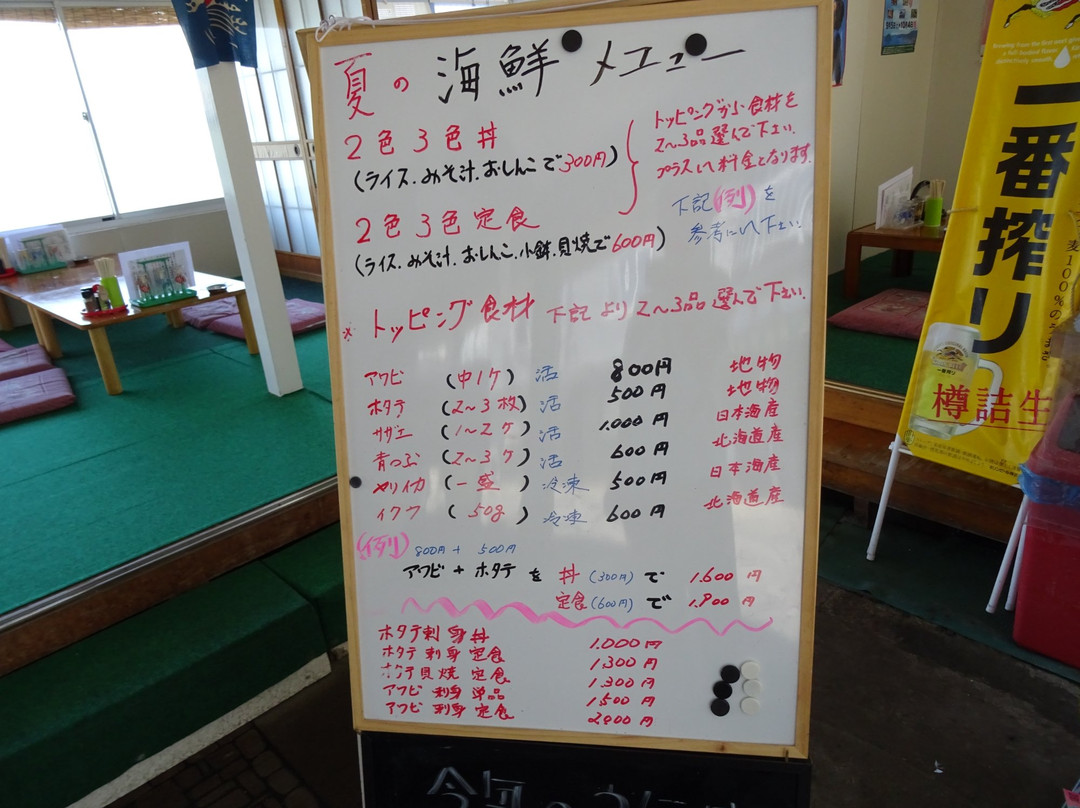 夏の 海鮮 メニュー
2色3色丼
(ライス.みそ汁.おしんこで300円)
トッピングから食材を
2〜3品選んで下さい.
プラスして料金となります.
下記(例)を
参考にして下さい.
2色3色定食
(ライス.みそ汁.おしんこ.小鉢.貝焼で600円)
※トッピング食材 下記より2〜3品選んで下さい.
アワビ (中1ケ) 活 800円 地物
ホタテ (2〜3枚) 活 500円 地物
サザエ (1〜2ケ) 活 1.000円 日本海産
青つぶ (2〜3ケ) 活 600円 北海道産
ヤリイカ (一盛) 冷凍 500円 日本海産
イクラ (50g) 冷凍 600円 北海道産
(例) 800円 + 500円
アワビ + ホタテ を 丼 (300円) で 1.600円
定食 (600円) で 1.900円
ホタテ刺身丼 1.000円
ホタテ刺身定食 1300円
ホタテ貝焼定食 1300円
アワビ刺身単品 1500円
アワビ刺身定食 2000円
一番搾り
麦100%のうまさ
樽詰生